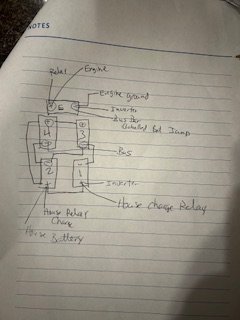 NOTES
Relay
Engine
Engine Ground
Inverter
Bus Bar
Bat Jump
5
4
3
Bus
2
1
Inverter
House Charge Relay
House Relay
Charge
House
Battery